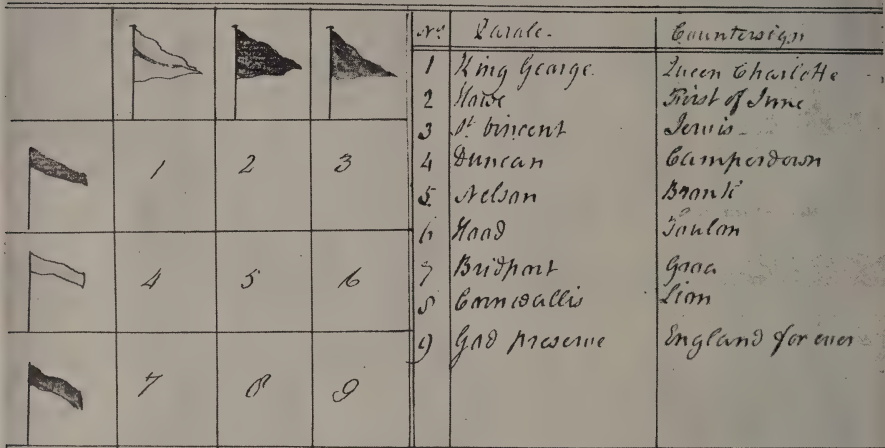 No. Parole. Countersign
1 King George. Queen Charlotte
2 Howe First of June
3 St. Vincent Jervis
4 Duncan Camperdown
5 Nelson Bronti
6 Hood Toulon
7 Bridport Groa
8 Cornwallis Lion
9 God preserve England for ever
1 2 3
4 5 6
7 8 9